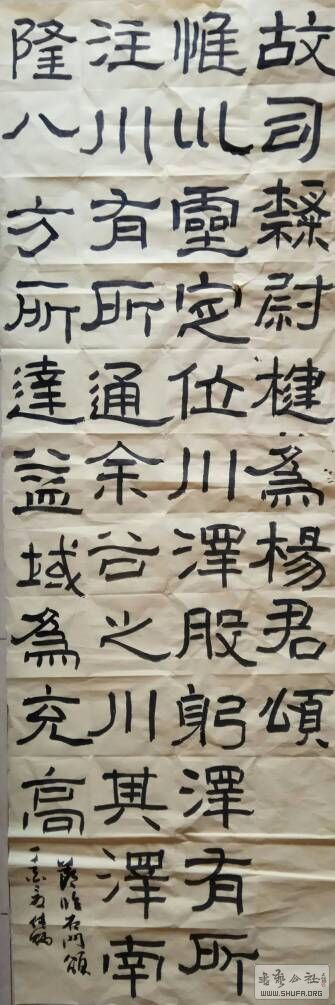 故司隸尉楗為楊君頌
惟巛靈定位川澤股躬澤有所
注川有所通余谷之川其澤南
隆八方所達益域為充高
節臨石門頌
書藝公社
WWW.SHUFA.ORG